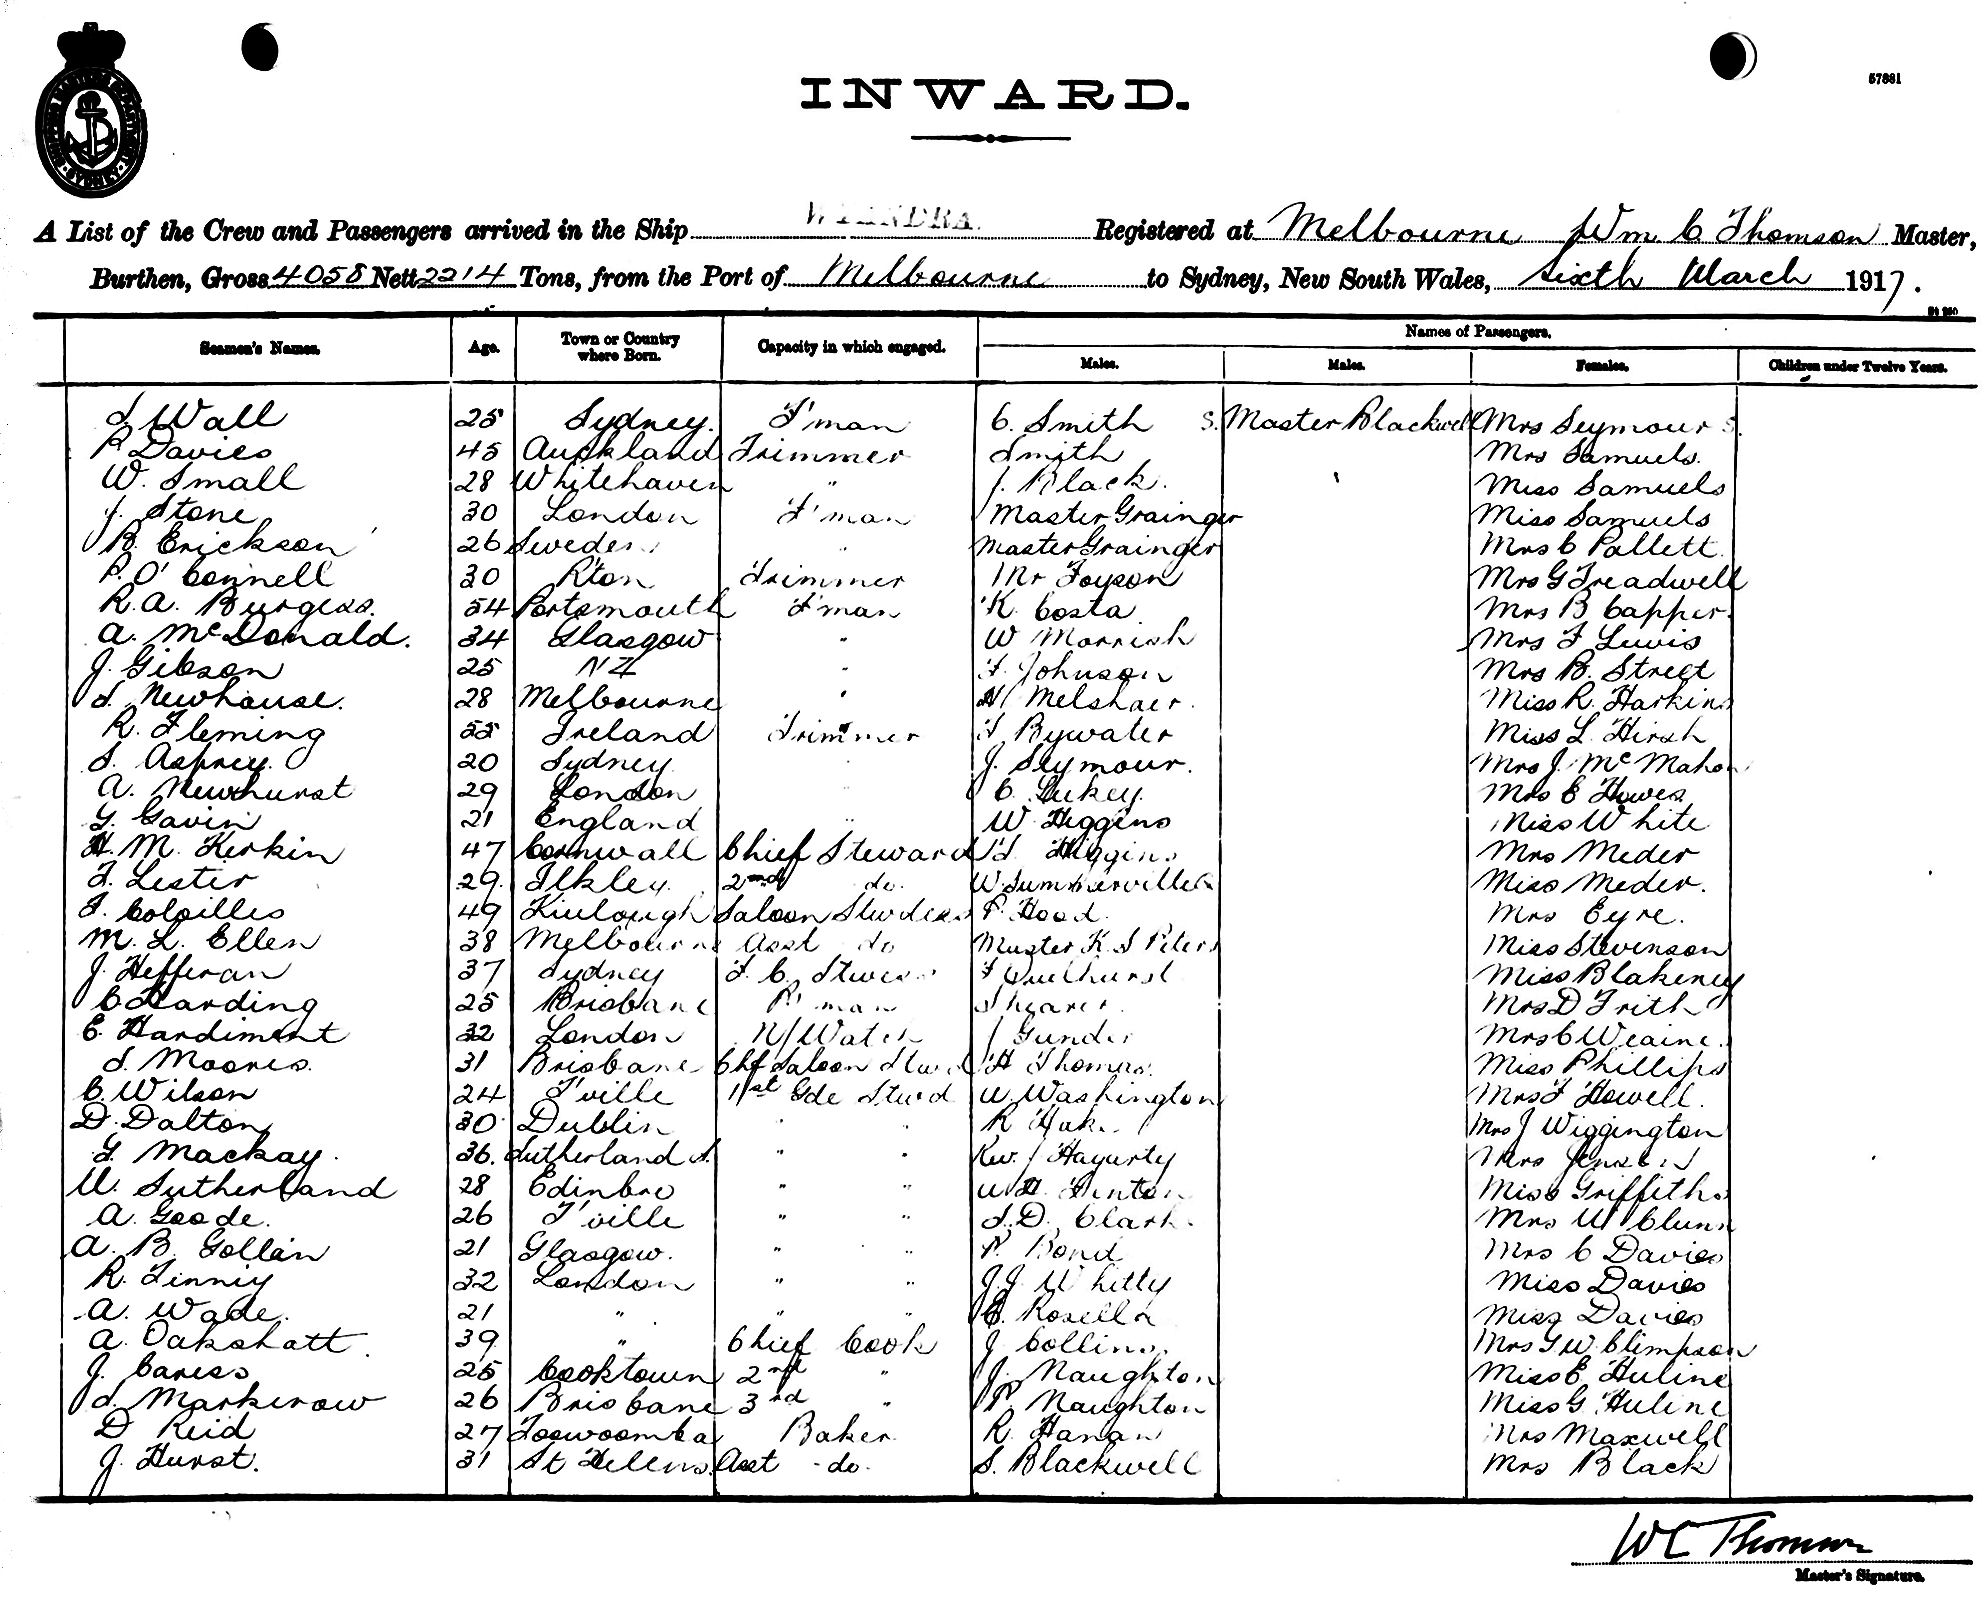 57881
INWARD.
A List of the Crew and Passengers arrived in the Ship WYANDRA. Registered at Melbourne Wm. C Thomson Master,
Burthen, Gross 4058 Nett 2214 Tons, from the Port of Melbourne to Sydney, New South Wales, Sixth March 1917.
Names of Passengers.
Seamen's Names. Age. Town or Country where Born. Capacity in which engaged. Males. Males. Females. Children under Twelve Years.
Wall 25 Sydney. F'man C. Smith S. Master Blackwell Mrs Seymour S.
P Davies 45 Auckland Trimmer Smith Mrs Samuels.
W. Small 28 Whitehaven " J. Black. Miss Samuels
J. Stone 30 London F'man Master Grainger Miss Samuels
R. Erickson 26 Sweden " Master Grainger Mrs C Pallett
P. O'Connell 30 R'ton Trimmer Mr Mrs G Treadwell
R. A. Burgess. 54 Portsmouth F'man K. Costa Mrs B Capper.
A. McDonald. 34 Glasgow " W Morrish Mrs F Lewis
J. Gibson 25 NZ " F. Johnson Mrs B. Street
S. Newhouse. 28 Melbourne " H Melshaer. Miss R. Harkins
R. Fleming 55 Ireland Trimmer F Bywater Miss L. Hirsh
S. Asprey. 20 Sydney J. Seymour. Mrs J. McMahon
A. Newhurst 29 London C. Lukey. Mrs C Howes
G. Gavin 21 England " W Higgins Miss White
H. M. Kerkin 47 Cornwall Chief Steward Higgins Mrs Meder
F. Lester 29. Ilkley. 2nd do. W. Summerville Miss Meder.
F. 49 Saloon Stwdess P. Hood Mrs Eyre.
M. L. Ellen 38 Melbourne Asst do Master K. S Peters Miss Stevenson
J. Hefferan 37 Sydney Miss Blakeney
C Harding 25 Brisbane P'man Shearer Mrs D Frith
E. Hardiment 32 London N/Watch J Gunder Mrs C Weaine.
S. Moores. 31 Brisbane Chf Saloon Stwd H Thomas. Miss Phillips
C. Wilson 24 T'ville 1st Gde Stwd W. Washington Mrs F Howell.
D. Dalton 30 Dublin " " R Mrs J Wiggington
G. Mackay. 36. Sutherland " " Rev. J Hagurty Mrs
W. Sutherland 28 Edinbro " " W H. Hinton Miss Griffiths
A. Goode. 26 T'ville " " S. D. Clark. Mrs W Clunn
A. B. Gollan 21 Glasgow. " " P. Bond Mrs C Davies
R. Finniy 32 London " " J. J. Whitty Miss Davies
A. Wade. 21 " " " E. Rosella Miss Davies
A. Oakshatt. 39 " Chief Cook J Collins. Mrs G W. Climpson
J. Caress 25 Cooktown 2nd " J. Naughton Miss E Huline
S. Markerow 26 Brisbane 3rd " P. Naughton Miss G Huline
D Reid 27 Toowoomba Baker R. Hanan Mrs Maxwell
J. Hurst. 31 St Helens. Asst do. S. Blackwell Mrs Black
WC Thomson
Master's Signature.